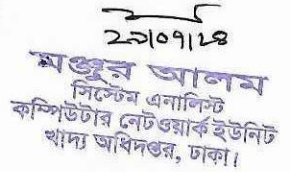 ২৯/০৭/২৪
মঞ্জুর আলম
সিস্টেম এনালিস্ট
কম্পিউটার নেটওয়ার্ক ইউনিট
খাদ্য অধিদপ্তর, ঢাকা।